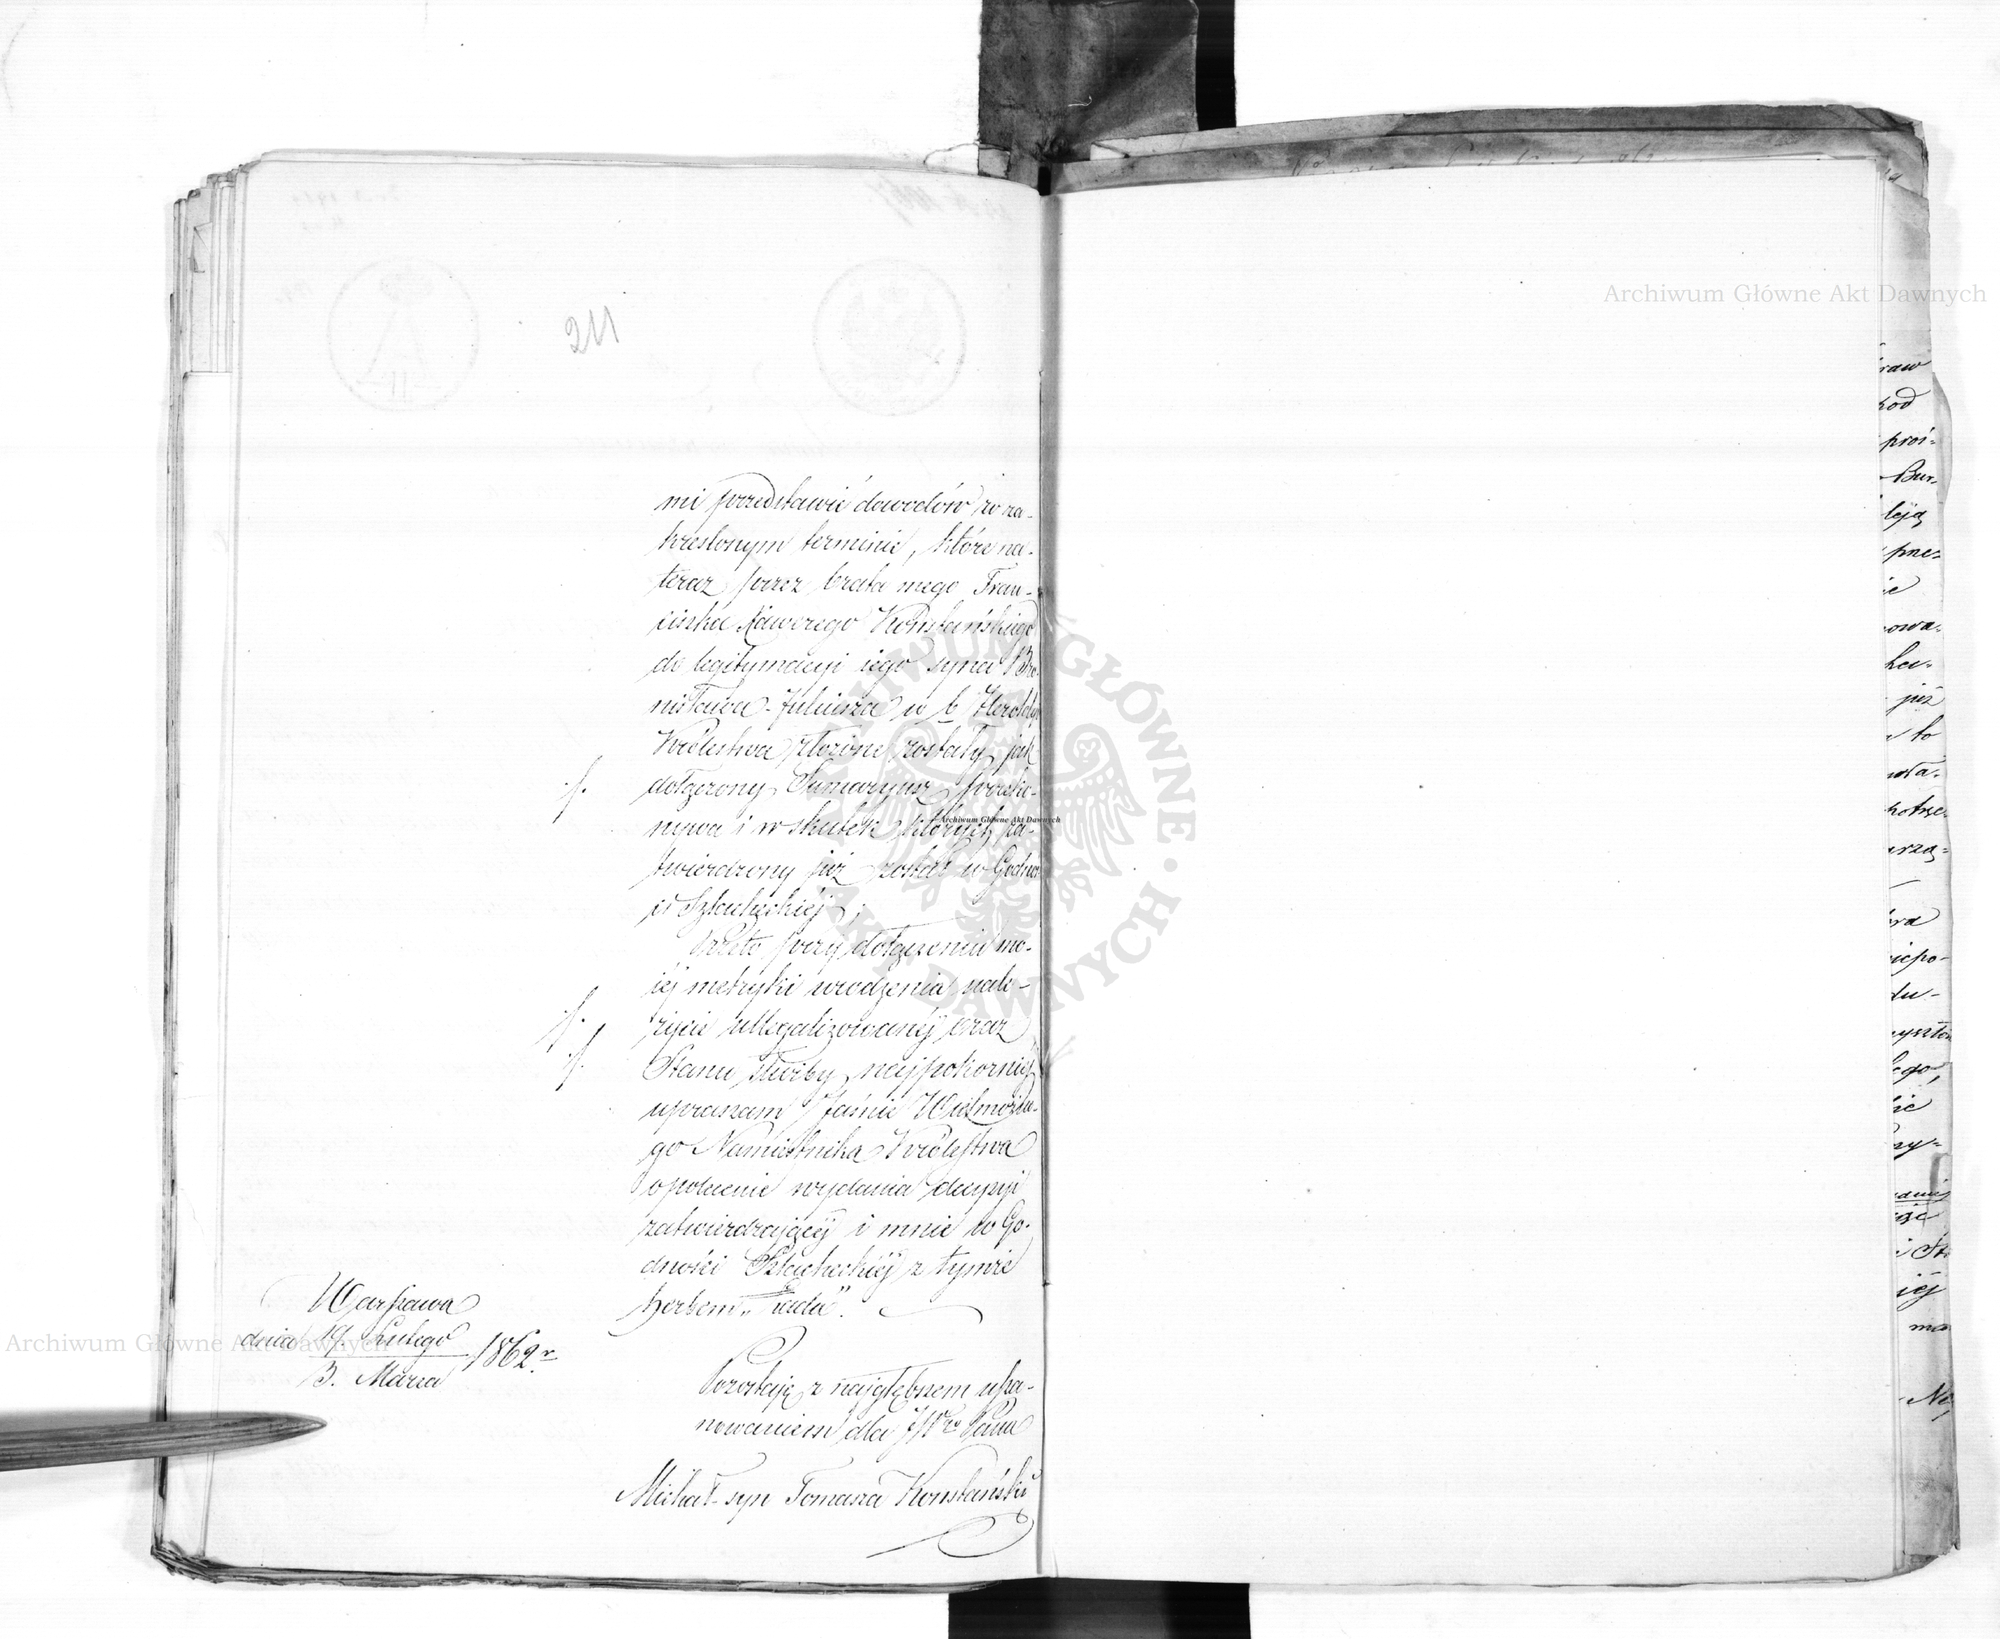 211
mi przedstawić dowodów w za-
kreślonym terminie, które na-
teraz przez brata mego Fran-
ciszka Xawerego Konstańskiego
do legitymacyi iego syna Bro-
nisława-Juliusza w b. Heroldyi
Królestwa złożone zostały, jak
dołączony Sumaryusz przeko-
nywa i w skutek których za-
twierdzony już został w Godno-
ści Szlacheckiéj;
Przeto przy dołączeniu mo-
iéj metryki urodzenia nale-
życie ullegalizowanéj oraz
Stanu służby, najpokorniéj
upraszam Jaśnie Wielmożne-
go Namiestnika Królestwa
o polecenie wydania decyzyi
zatwierdzającéj i mnie w Go-
dności Szlacheckiéj z tymże
herbem
Warszawa
dnia 19. Lutego
3. Marca 1862 r.
Pozostaję z najgłębszem usza-
nowaniem dla JWgo Pana
Michał syn Tomasza Konstański
Archiwum Główne Akt Dawnych
Archiwum Główne Akt Dawnych
Archiwum Główne Akt Dawnych
ARCHIWUM GŁÓWNE AKT DAWNYCH
raw
kod
proi-
Bur-
leją
owa-
już
to
arzą-
iepo-
du-
iéj